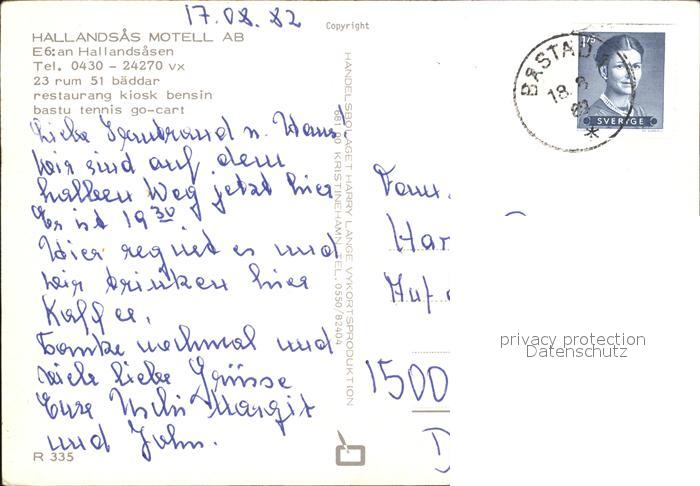 17.08.82
Copyright
HALLANDSÅS MOTELL AB
E6:an Hallandsåsen
Tel. 0430 - 24270 vx
23 rum 51 bäddar
restaurang kiosk bensin
bastu tennis go-cart
Liebe u. Hans
wir sind auf dem
halben Weg jetzt hier
Es ist 19 30
Hier regnet es und
wir trinken hier
Kaffee.
Danke nochmal und
viele liebe Grüsse
Eure Uschi Margit
und John.
R 335
HANDELSBOLAGET HARRY LANGE VYKORTSPRODUKTION
681 00 KRISTINEHAMN, TEL. 0550/82404
BÅSTAD
18.8
82
175
SVERIGE
Fam.
Har
Auf
1500
D
privacy protection
Datenschutz